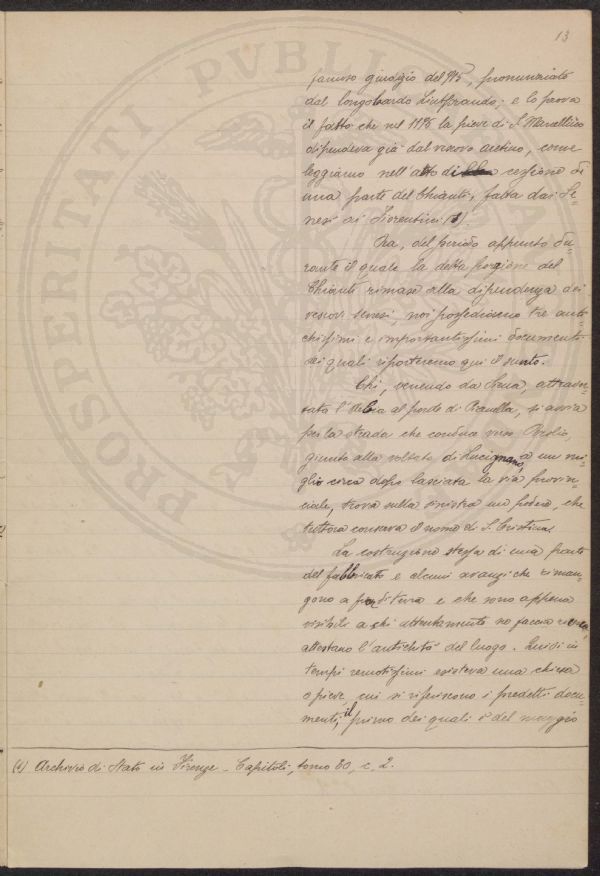 13
famoso giudizio del 715, pronunziato
dal longobardo Liutprando; e lo prova
il fatto che nel 1176 la pieve di S. Marcellino
dipendeva già dal vescovo aretino, come
leggiamo nell'atto di cessione di
una parte del Chianti, fatta dai Se-
nesi ai Fiorentini (1).
Ora, del periodo appunto du-
rante il quale la detta porzione del
Chianti rimase alla dipendenza dei
vescovi senesi, noi possediamo tre anti-
chissimi e importantissimi documenti
dei quali riporteremo qui il sunto.
Chi, venendo da Siena, attraver-
sata l'Arbia al ponte di Pianella, si avvia
per la strada che conduce verso Brolio,
giunto alla voltata di Lucignano, a un mi-
glio circa dopo lasciata la via provin-
ciale, trova sulla sinistra un podere, che
tuttora conserva il nome di S. Cristina.
La costruzione stessa di una parte
del fabbricato e alcuni avanzi che riman-
gono a fior di terra e che sono appena
visibili a chi attentamente ne faccia ricerca,
attestano l'antichità del luogo. Quivi in
tempi remotissimi esisteva una chiesa
o pieve, cui si riferiscono i predetti docu-
menti, il primo dei quali è del maggio
(1) Archivio di Stato in Firenze - Capitoli, tomo 20, c. 2.
PROSPERITATI PVBLICAE